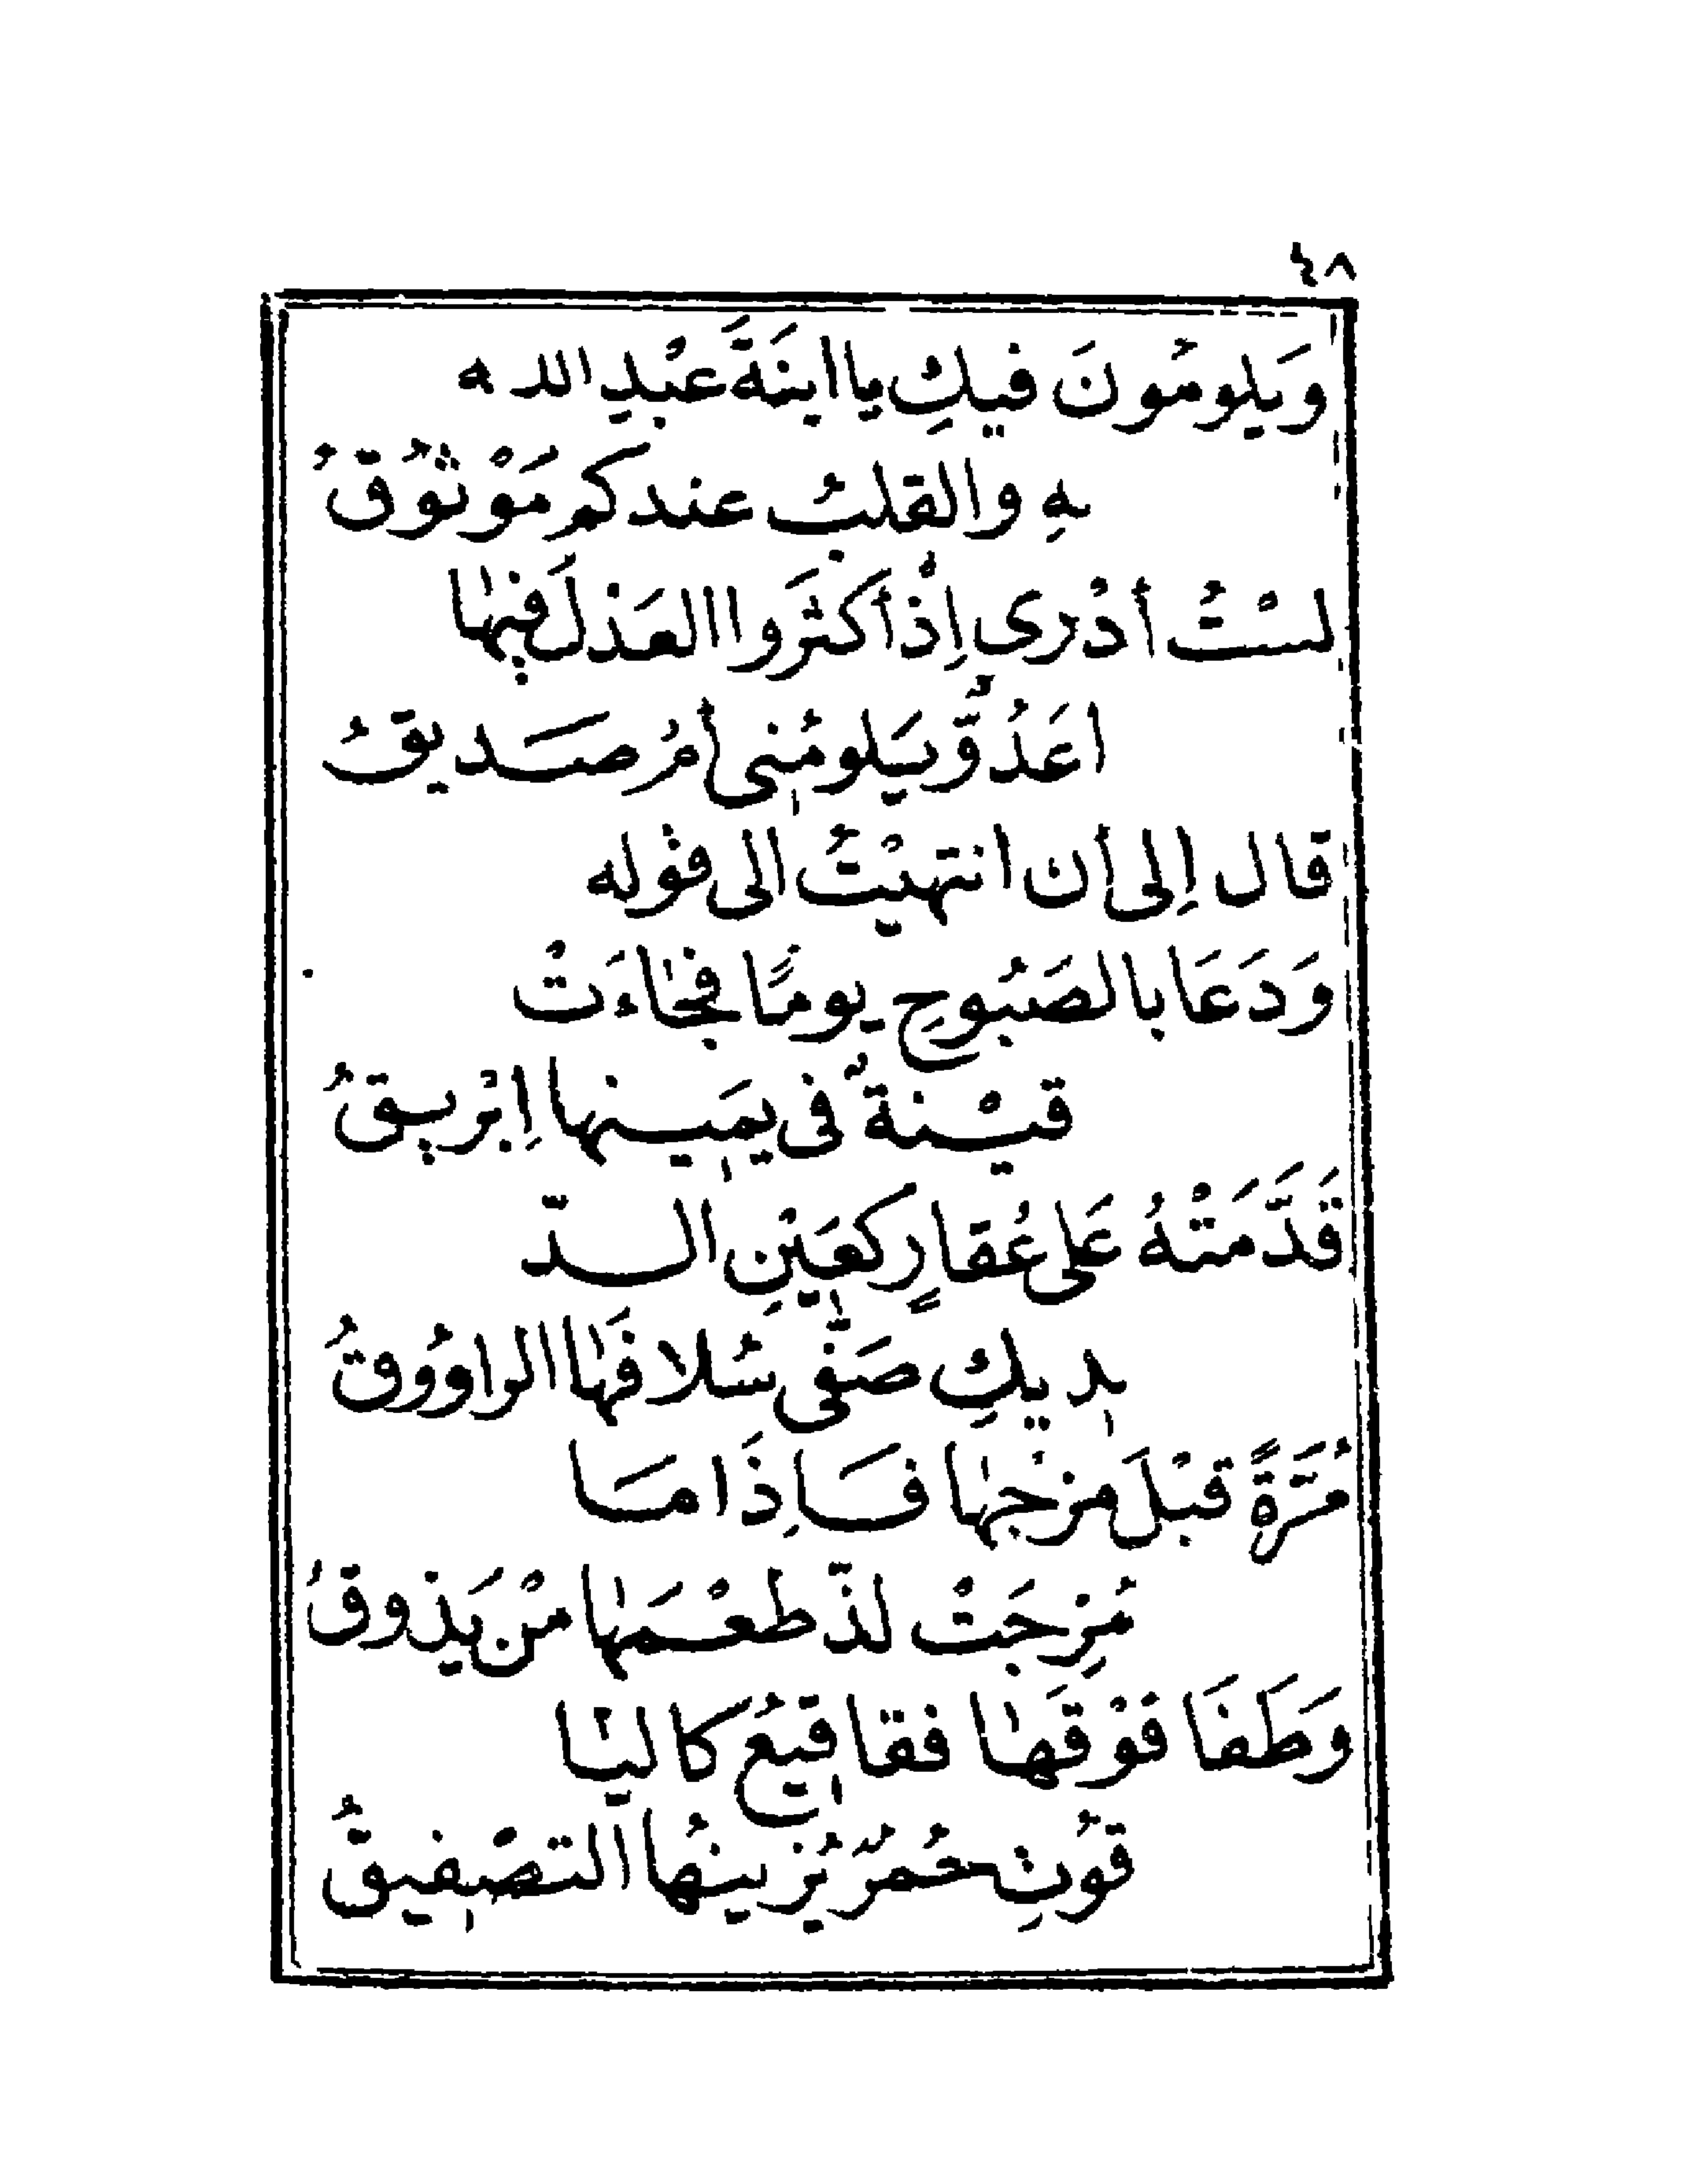 ٤٨
وَيَلومُونَ فيكِ يا ابنَةَ عَبْدِ الله
بهِ والقلبُ عندكم مَوْثُوُقُ
لسْتُ أدْرى إِذْ أكثَرَوا العَذلَ فيهٰا
اعَدُوٌّ يَلومُنى أمْ صَديقُ
قال إِلى أن انتهيْتُ الى قوْله
وَدَعَا بالصَبُوحِ يومًا فجٰاءَتْ
قيْنةٌ فى يمَينها اِبْريقُ
قَدَّمَتْهُ عَلى عُقارٍ كعَيْنِ الدّ
ديكِ صَفّى سُلافَهٰا الراوُوقُ
مُرَّةً قبْلَ مزْجهٰا فَاِذَا مَا
مُزِجَتْ لذّ طعْمَهٰا مَنْ يَذوقُ
وَطَفَا فَوْقَهٰا فقاقيعُ كاليٰا
قوُتِ حُمرٌ يُزينُها التصْفيقُ